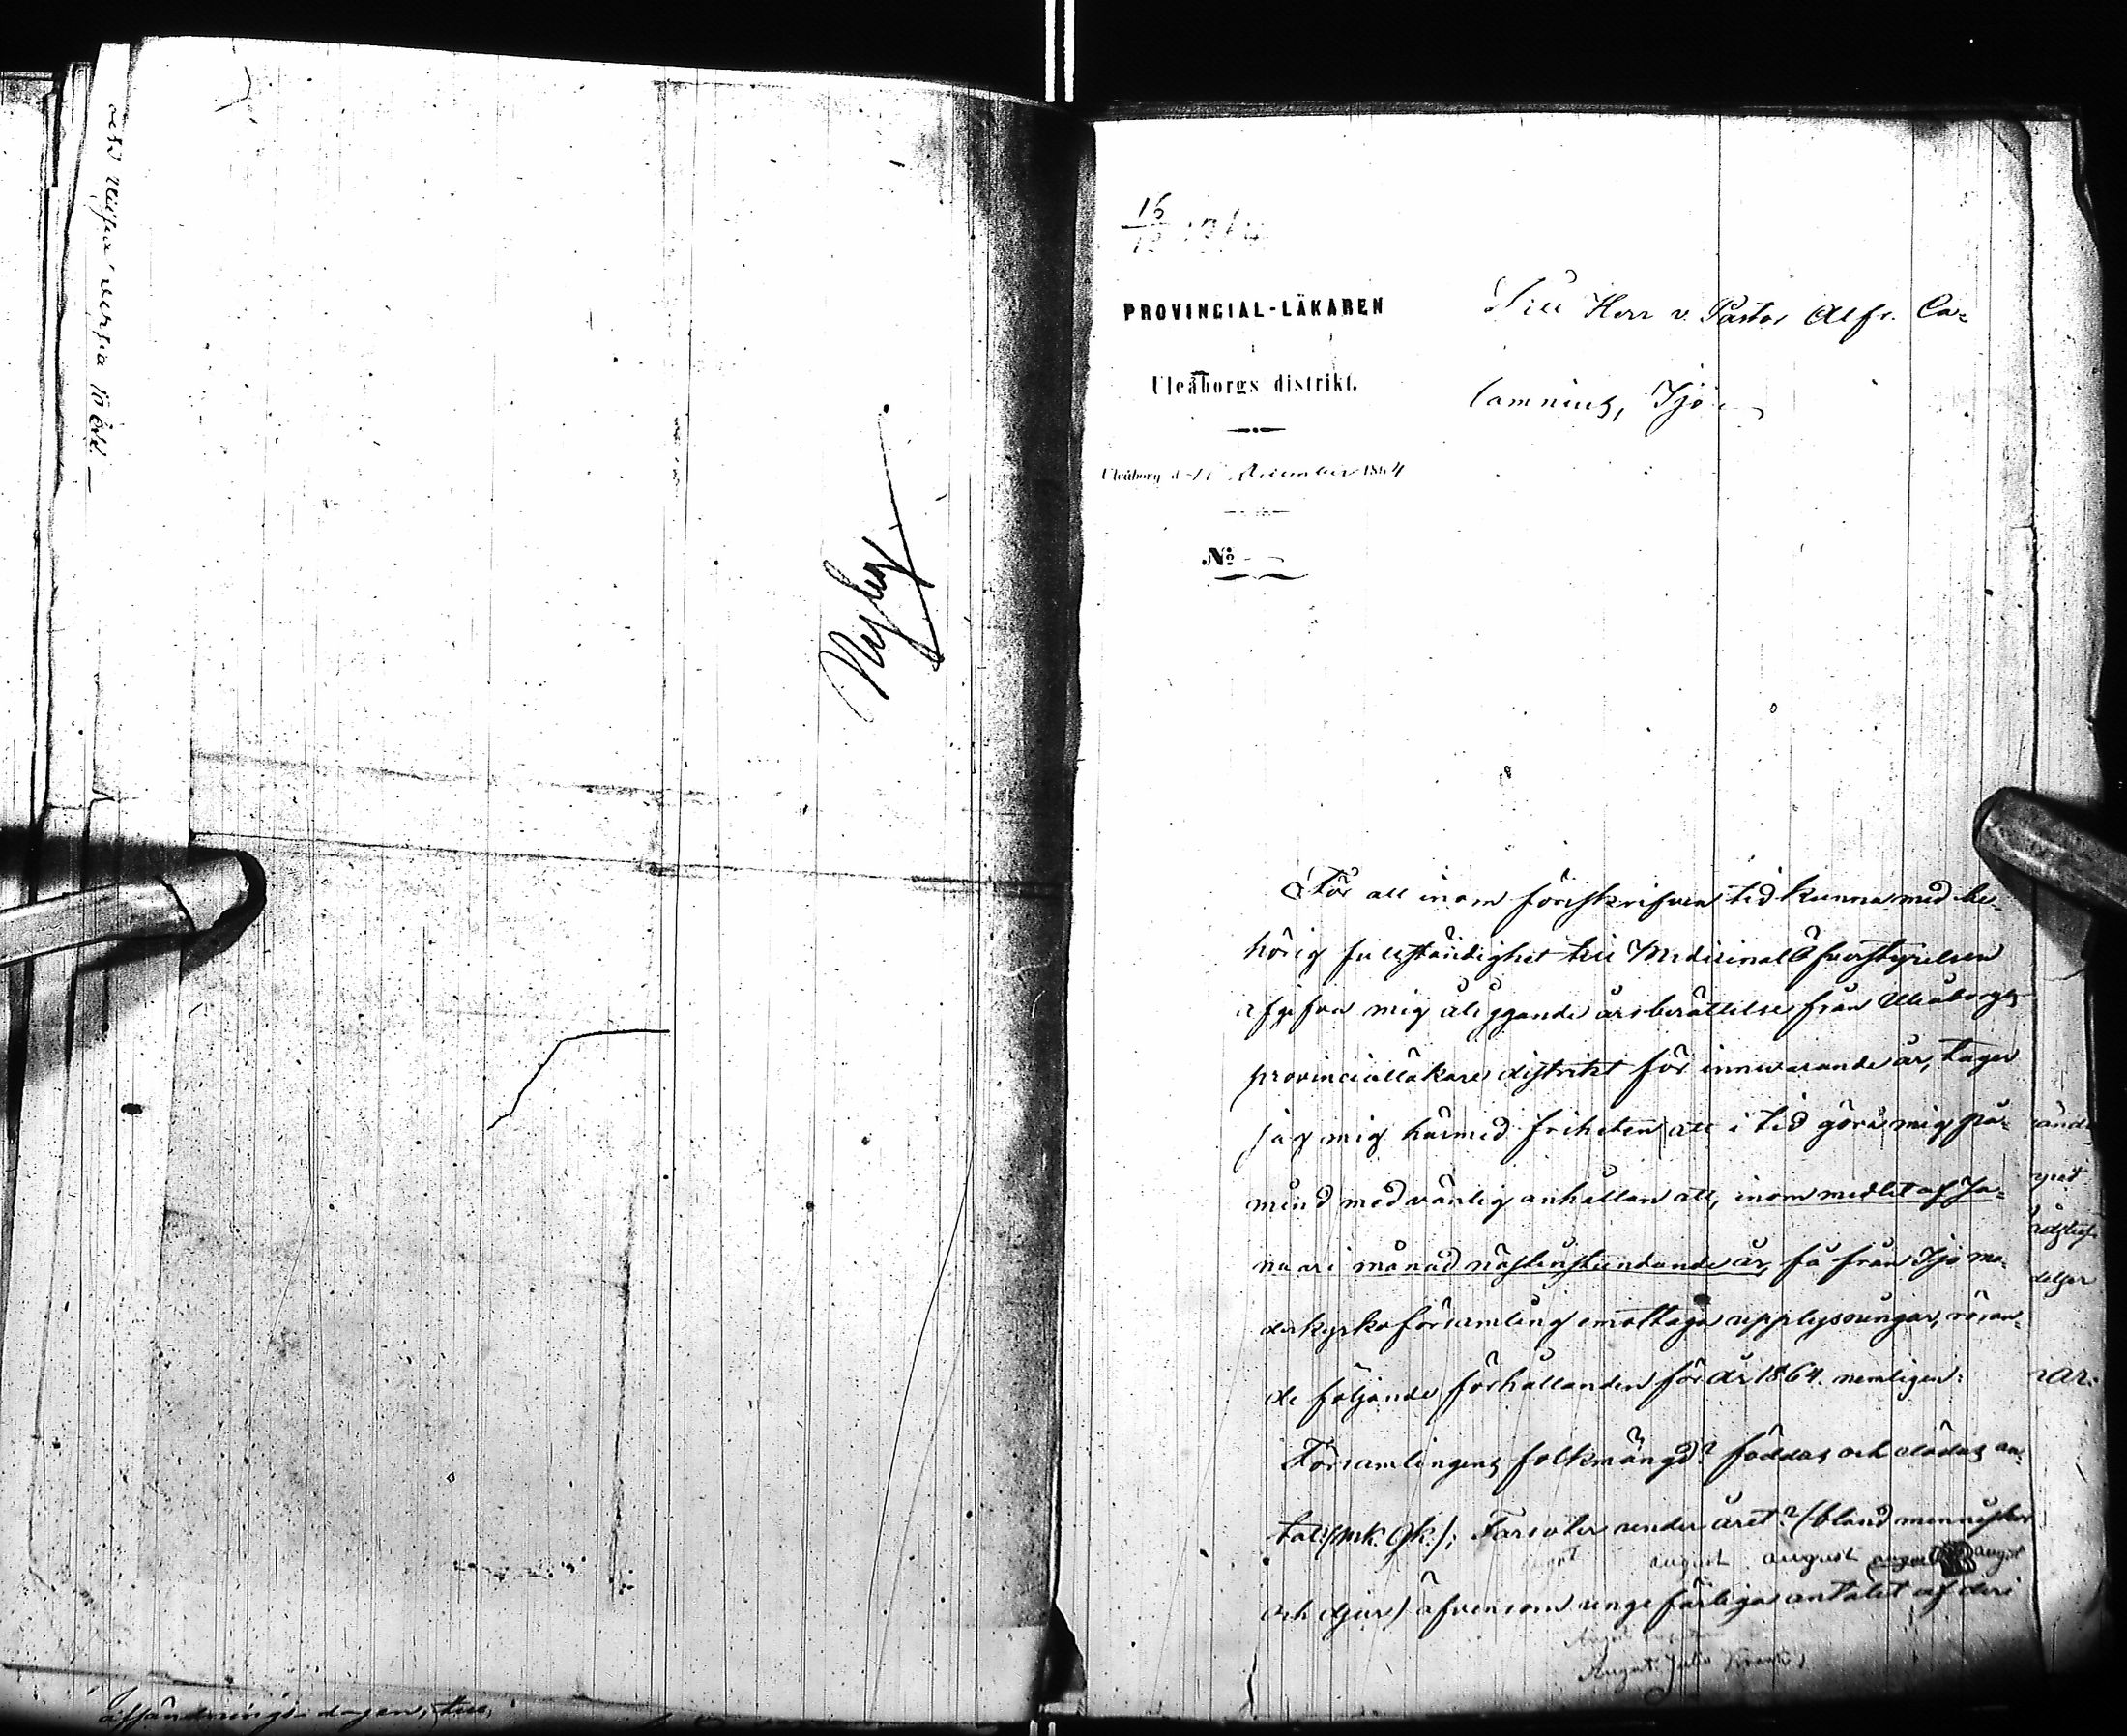 Nyby
afsändnings-dagen, till
16
12
PROVINCIAL-LÄKAREN
Uleåborgs distrikt.
Uleåborg d. December 1864
No
Till Herr v. Pastor Alfr. Ca-
lamnius, Ijo
För att inom föreskrifven tid kunna med be-
hörig fullständighet till Medicinal Öfverstyrelsen
afgifva mig åliggande årsberättelse från Uleåborgs
provincialläkare distrikt för innevarande år, tager
jag mig härmed friheten att i tid göra mig på-
mind med vänlig anhållan att, inom medlet af Ja-
nuari månad nästinstundande år, få från Ijo mo-
derkyrkoförsamling emottaga upplysningar, röran-
de följande förhållanden för år 1864. nemligen:
Församlingens folkmängd? föddas och dödas an-
tal (Mk. Qk.); Farsoter under året? (bland menniskor
august august august august
och djur) äfvensom ungefärliga antalet af deri
August